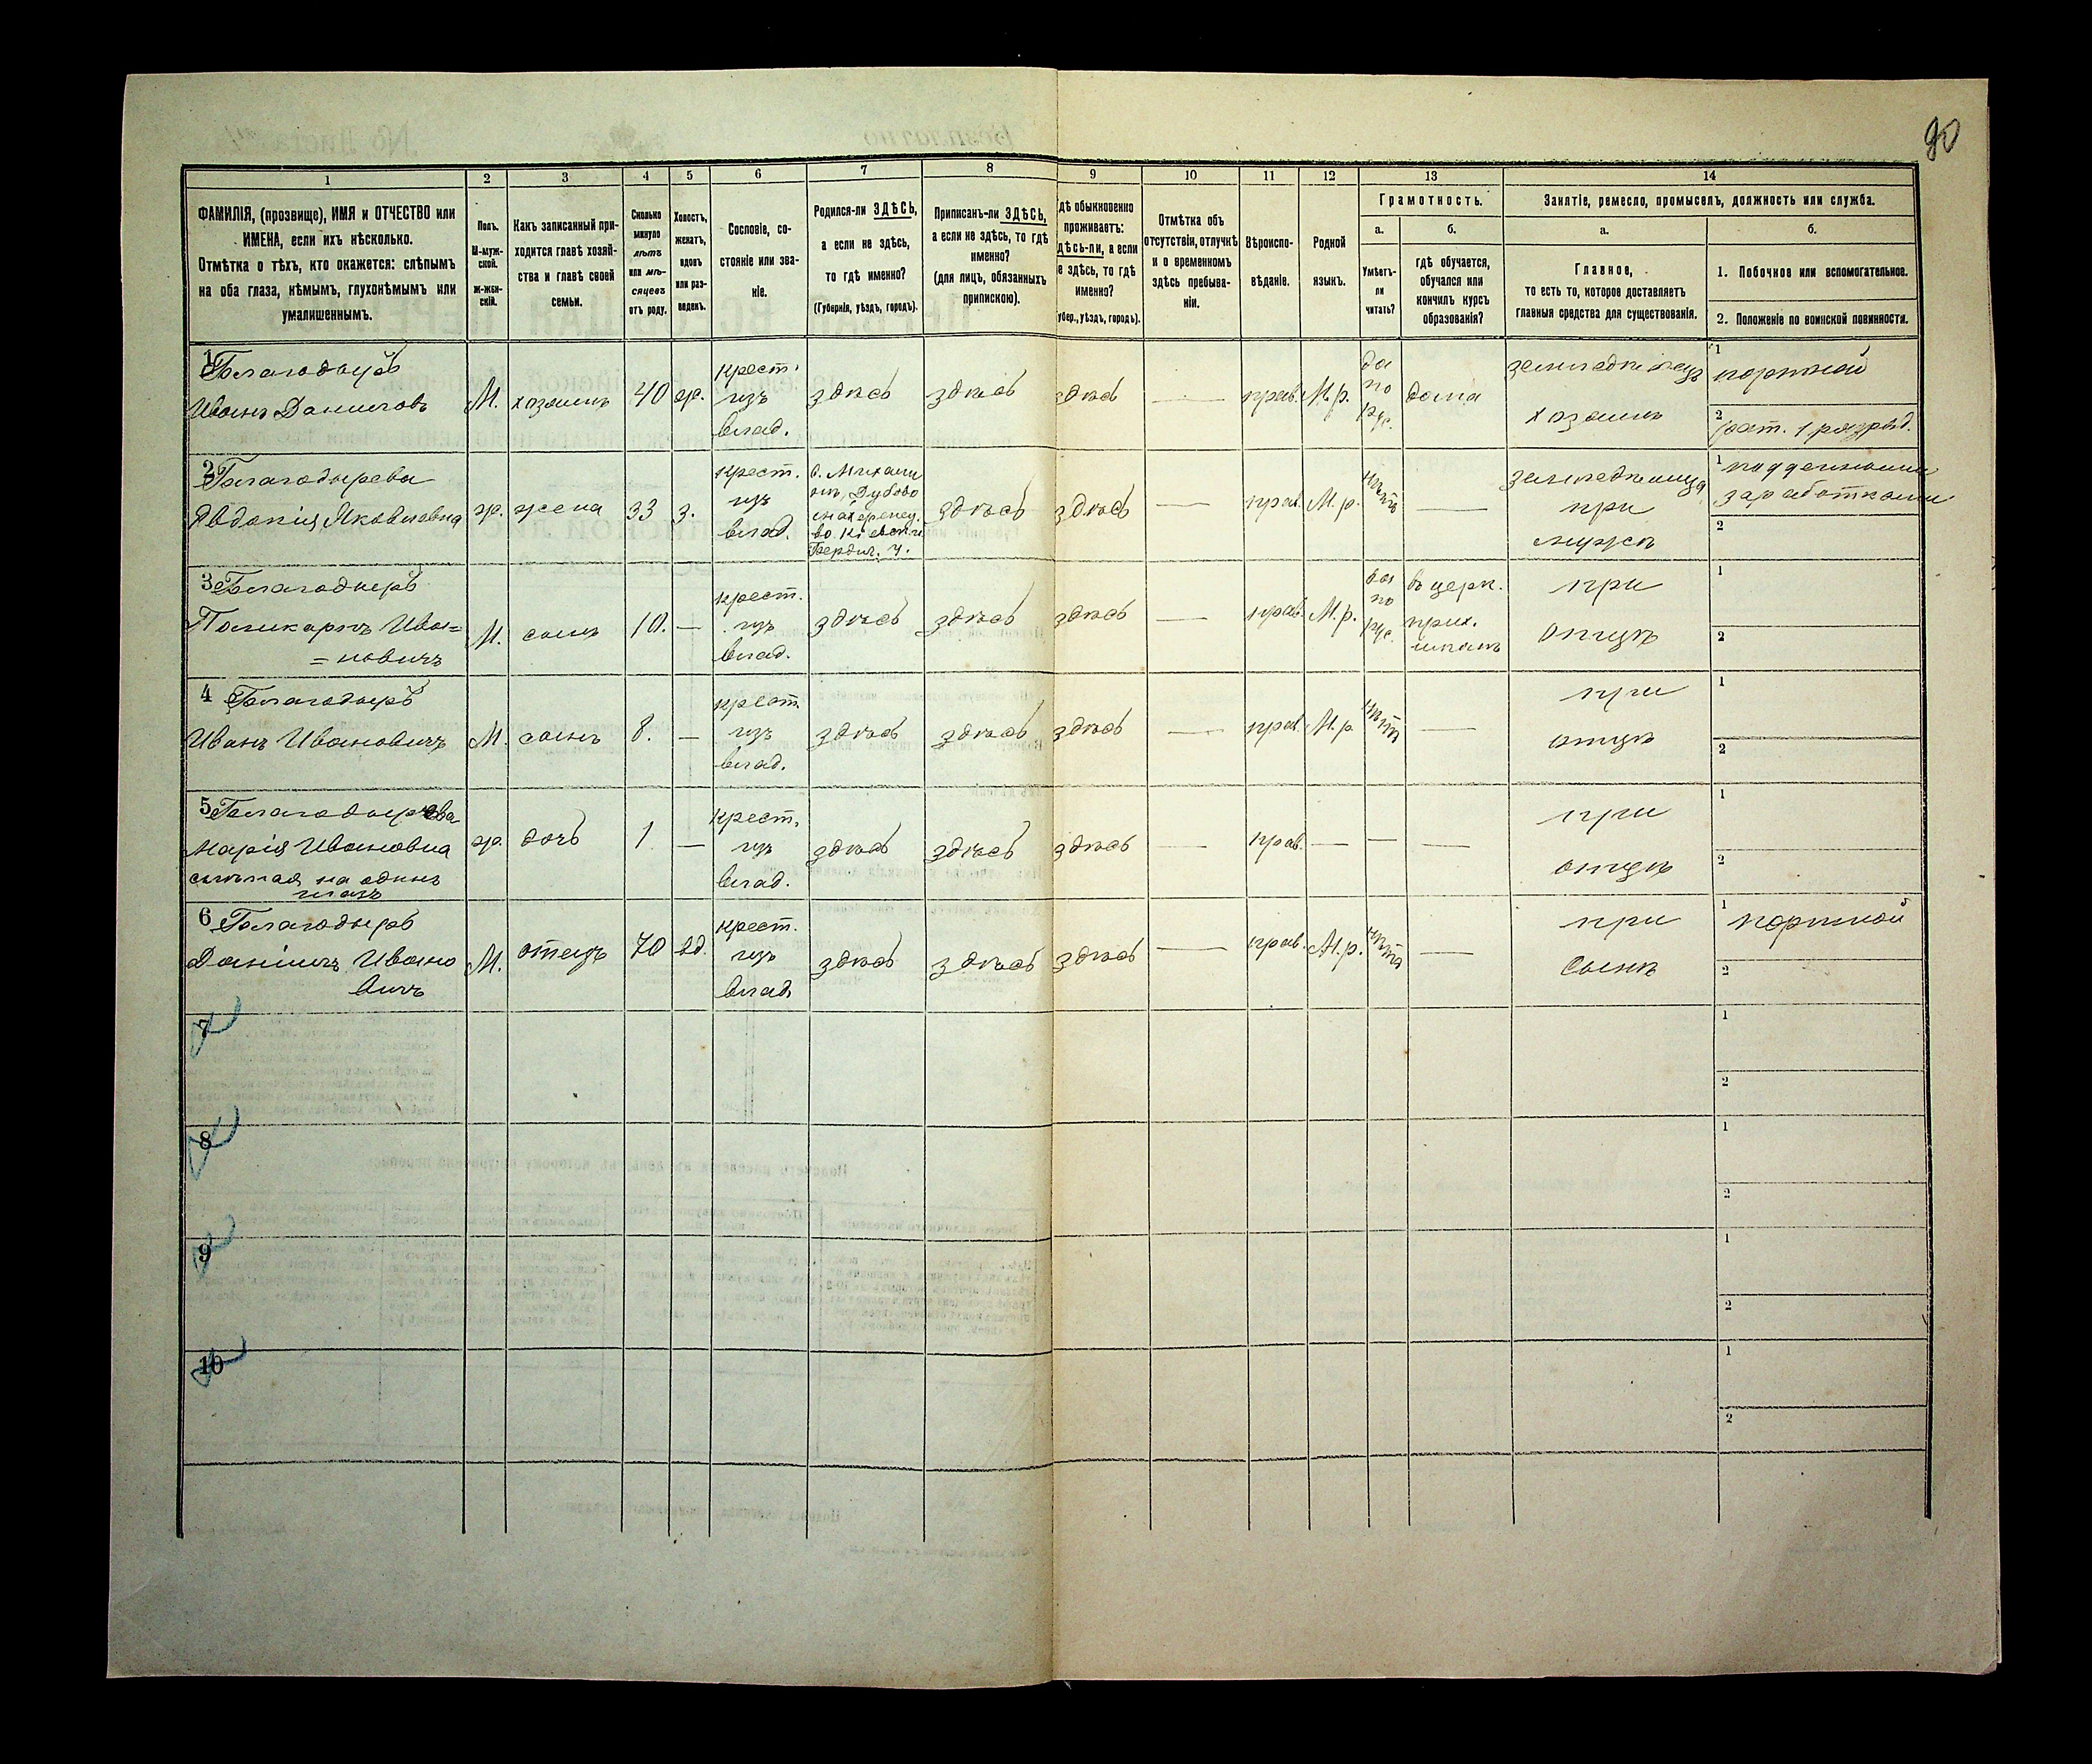 90
1
2
3
4
5
6
7
8
9
10
11
12
13
14
ФАМИЛІЯ, (прозвище), ИМЯ и ОТЧЕСТВО или
ИМЕНА, если ихъ нѣсколько.
Отмѣтка о тѣхъ, кто окажется: слѣпымъ
на оба глаза, нѣмымъ, глухонѣмымъ или
умалишеннымъ.
Полъ.
М-муж-
ской.
Ж-жен-
скій.
Какъ записанный при-
ходится главѣ хозяй-
ства и главѣ своей
семьи.
Сколько
минуло
лѣтъ
или мѣ-
сяцевъ
отъ роду.
Холостъ,
женатъ,
вдовъ
или раз-
веденъ.
Сословіе, со-
стояніе или зва-
ніе.
Родился-ли ЗДѢСЬ,
а если не здѣсь,
то гдѣ именно?
(Губернія, уѣздъ, городъ).
Приписанъ-ли ЗДѢСЬ,
а если не здѣсь, то гдѣ
именно?
(для лицъ, обязанныхъ
припискою).
гдѣ обыкновенно
проживаетъ:
здѣсь-ли, а если
не здѣсь, то гдѣ
именно?
(Губер., уѣздъ, городъ).
Отмѣтка объ
отсутствіи, отлучкѣ
и о временномъ
здѣсь пребыва-
ніи.
Вѣроиспо-
вѣданіе.
Родной
языкъ.
Грамотность.
а.
Умѣетъ-
ли
читать?
б.
гдѣ обучается,
обучался или
кончилъ курсъ
образованія?
Занятіе, ремесло, промыселъ, должность или служба.
а.
Главное,
то есть то, которое доставляетъ
главныя средства для существованія.
б.
1. Побочное или вспомогательное.
2. Положеніе по воинской повинности.
1 Благодыръ
Иванъ Даниловъ
М.
хозяинъ
40
ж.
крест.
изъ
влад.
здѣсь
здѣсь
здѣсь
—
прав.
М.р.
да
по
рус.
дома
земледѣлецъ
хозяинъ
1 портной
2 рат. 1 разряд.
2 Благодырева
Явдокія Яковлевна
ж.
жена
33
з.
крест.
изъ
влад.
Дубово
Бердич. у.
здѣсь
здѣсь
—
прав.
М.р.
нѣтъ
—
земледѣлица
при
мужѣ
1
заработками
2
3 Благодыръ
Поликарпъ Ива=
=новичъ
М.
сынъ
10.
—
крест.
изъ
влад.
здѣсь
здѣсь
здѣсь
—
прав.
М.р.
да
по
рус.
въ церк.
прих.
школѣ
при
отцѣ
1
2
4 Благодыръ
Иванъ Ивановичъ
М.
сынъ
8.
—
крест.
изъ
влад.
здѣсь
здѣсь
здѣсь
—
прав.
М.р.
нѣтъ
—
при
отцѣ
1
2
5 Благодырева
Марія Ивановна
слѣпая на одинъ
глазъ
ж.
дочь
1
—
крест.
изъ
влад.
здѣсь
здѣсь
здѣсь
—
прав.
—
—
—
при
отцѣ
1
2
6 Благодыръ
Даніилъ Ивано
вичъ
М.
отецъ
70
вд.
крест.
изъ
влад.
здѣсь
здѣсь
здѣсь
—
прав.
М.р.
нѣтъ
—
при
сынѣ
1 портной
2
7
1
2
8
1
2
9
1
2
10
1
2